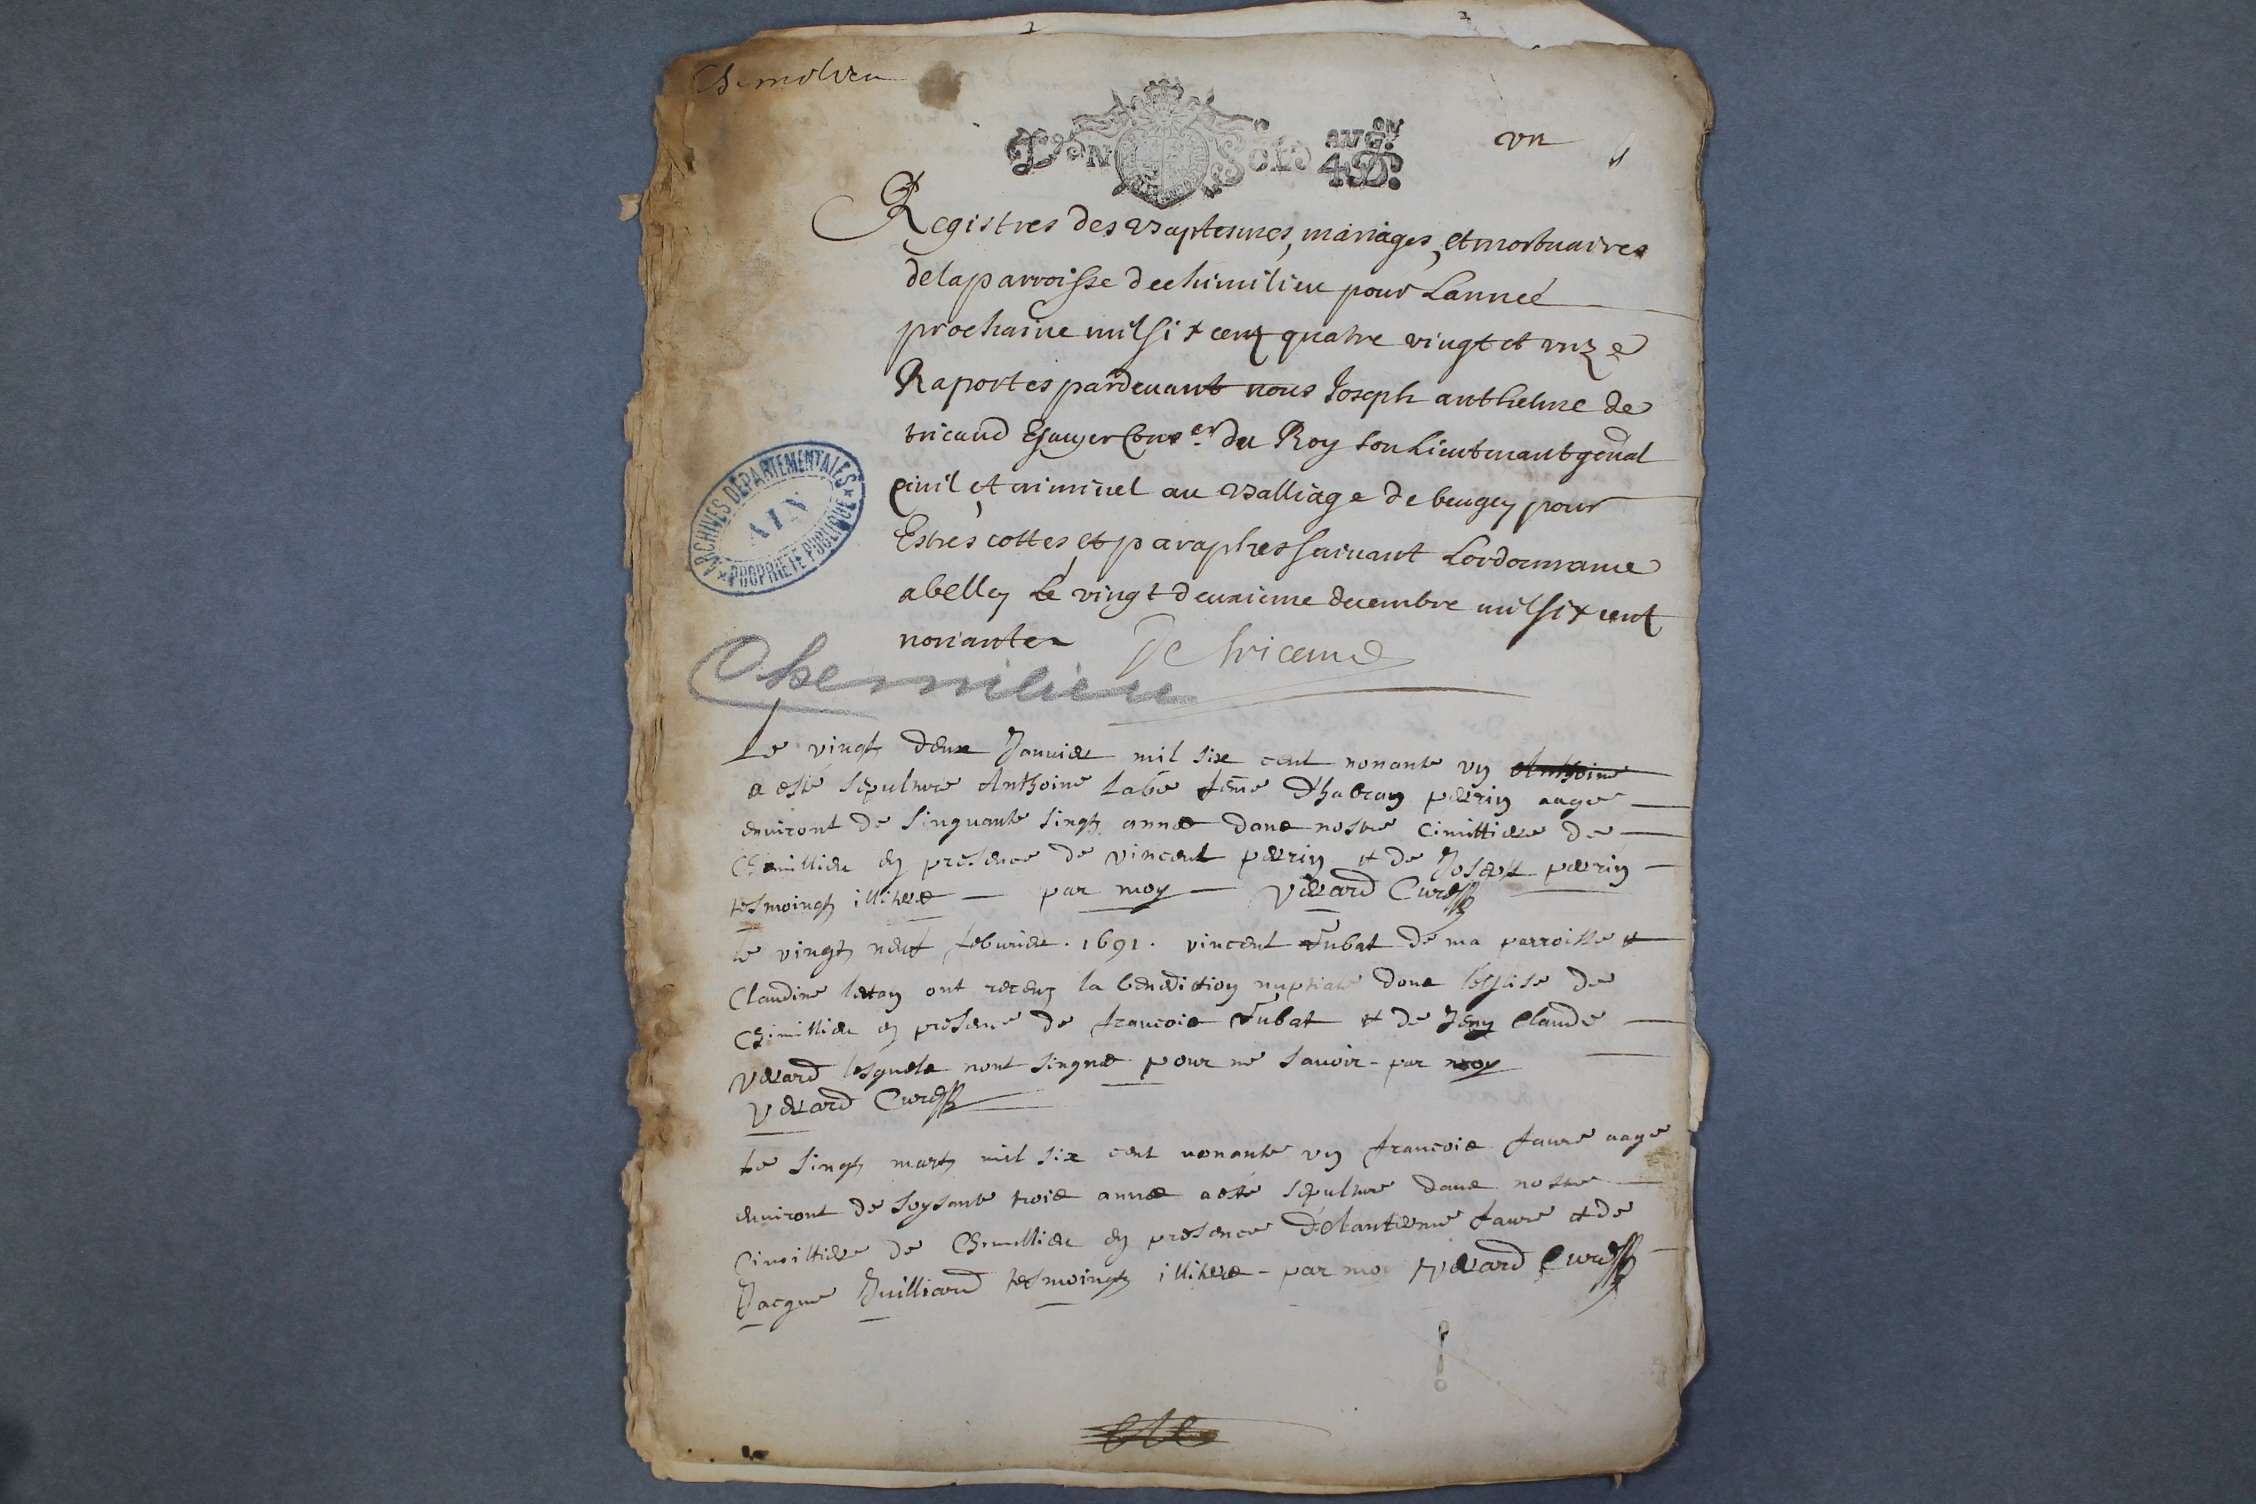 Chemilieu
Lyon Soit AUG.ON 4 D.
vn
Registres des Baptesmes, mariages, et mortuaires
de la parroisse de chimilieu pour Lanneé
prochaine mil six cent quatre vingt et unze
Raportes pardeuant nous Joseph anthelme de
tricaud Escuyer Conser du Roy son Lieutenant genal
ciuil et criminel au Balliage de beugey pour
Estres cottes, et paraphes suiuant Lordonnance
a belley Le vingt deuxieme decembre mil six cent
nonante
De tricaud
Chemilieu
ARCHIVES DÉPARTEMENTALES
AIN
PROPRIÉTÉ PUBLIQUE
Le vingt deux Januier mil six cent nonante vn Anthoine
a esté sepulture Anthoine Labe feme d'habran perrin aage
enuiront de sinquante sinq annee dans nostre cimittiere de
Chimillieu en presence de vincent perrin et de Joseph perrin
tesmoings illitere par moy Verard Curé
le vingt neuf feburier . 1691 . vincent Jubat de ma parroisse et
Claudine letan ont receuz la benediction nuptiale dans l'eglise de
Chimillieu en presence de francois Jubat et de Jeny Claude
Verard lesquels nont singne pour ne sauoir - par moy
Verard Curé
Le sinq mars mil six cent nonante vn francois faure aage
enuiront de soysante trois annee a esté sepulture dans nostre
Cimittiere de Chimillieu en presence d'Elantienne faure et de
Jacque Juilliard tesmoings illitere - par moy Verard Curé